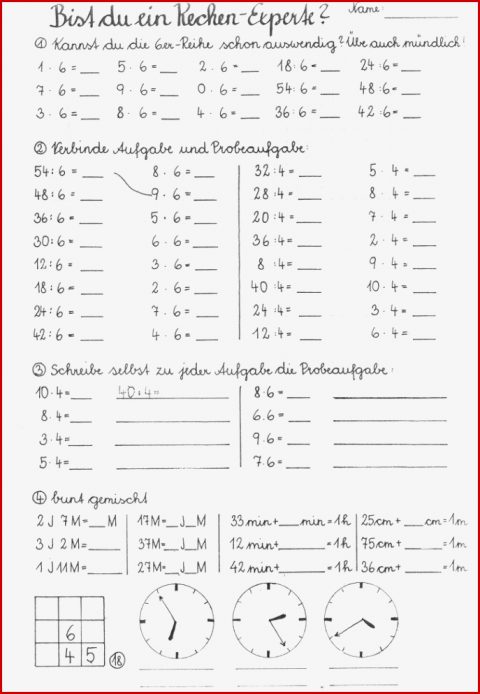 Bist du ein Rechen-Experte? Name: ________
① Kannst du die 6er-Reihe schon auswendig? Übe auch mündlich!
1 · 6 = ___ 5 · 6 = ___ 2 · 6 = ___ 18 : 6 = ___ 24 : 6 = ___
7 · 6 = ___ 9 · 6 = ___ 0 · 6 = ___ 54 : 6 = ___ 48 : 6 = ___
3 · 6 = ___ 8 · 6 = ___ 4 · 6 = ___ 36 : 6 = ___ 42 : 6 = ___
② Verbinde Aufgabe und Probeaufgabe:
54 : 6 = ___ 8 · 6 = ___ 32 : 4 = ___ 5 · 4 = ___
48 : 6 = ___ 9 · 6 = ___ 28 : 4 = ___ 8 · 4 = ___
36 : 6 = ___ 5 · 6 = ___ 20 : 4 = ___ 7 · 4 = ___
30 : 6 = ___ 6 · 6 = ___ 36 : 4 = ___ 2 · 4 = ___
12 : 6 = ___ 3 · 6 = ___ 8 : 4 = ___ 9 · 4 = ___
18 : 6 = ___ 2 · 6 = ___ 40 : 4 = ___ 10 · 4 = ___
24 : 6 = ___ 7 · 6 = ___ 24 : 4 = ___ 3 · 4 = ___
42 : 6 = ___ 4 · 6 = ___ 12 : 4 = ___ 6 · 4 = ___
③ Schreibe selbst zu jeder Aufgabe die Probeaufgabe:
10 · 4 = ___ 40 : 4 = ___ 8 · 6 = ___ ___
8 · 4 = ___ ___ 6 · 6 = ___ ___
3 · 4 = ___ ___ 9 · 6 = ___ ___
5 · 4 = ___ ___ 7 · 6 = ___ ___
④ bunt gemischt
2 J 7 M = ___ M 17 M = __ J __ M 33 min + ___ min = 1 h 25 cm + ___ cm = 1 m
3 J 2 M = ___ 37 M = __ J __ M 12 min + ___ = 1 h 75 cm + ___ = 1 m
1 J 11 M = ___ 27 M = __ J __ M 42 min + ___ = 1 h 36 cm + ___ = 1 m
6
4 5 ⑱